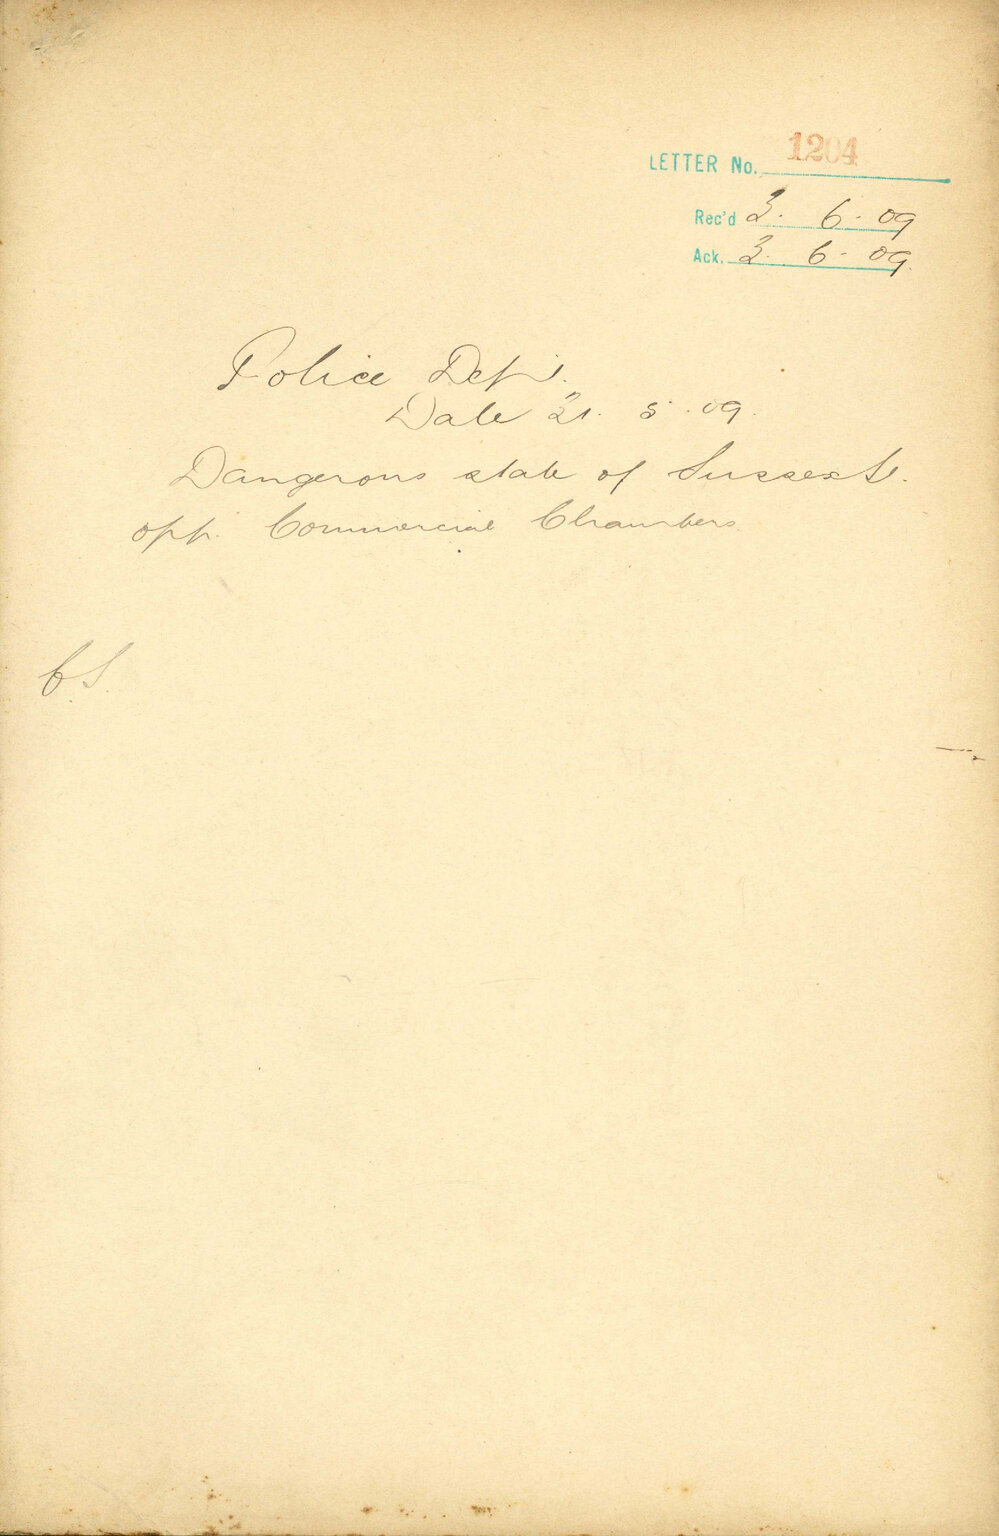 LETTER No. 1204
Rec'd 3. 6. 09
Ack. 3. 6. 09.
Police Dept.
Date 21. 5. 09.
Dangerous state of Sussex St.
opp. Commercial Chambers.